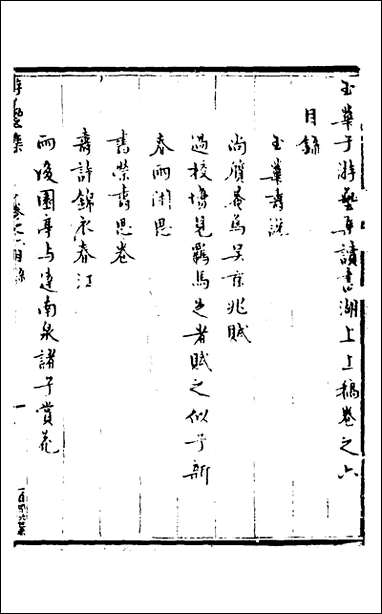 玉華子游藝集讀書湖上上稿卷之六
目錄
玉華齋說
尚膳菴為吳京兆賦
過校場見羈馬之者賦之似予新
春雨閒思
書榮書思卷
壽許錦衣春江
雨後園亭与達南泉諸子賞花
游藝集 卷之六目錄 一